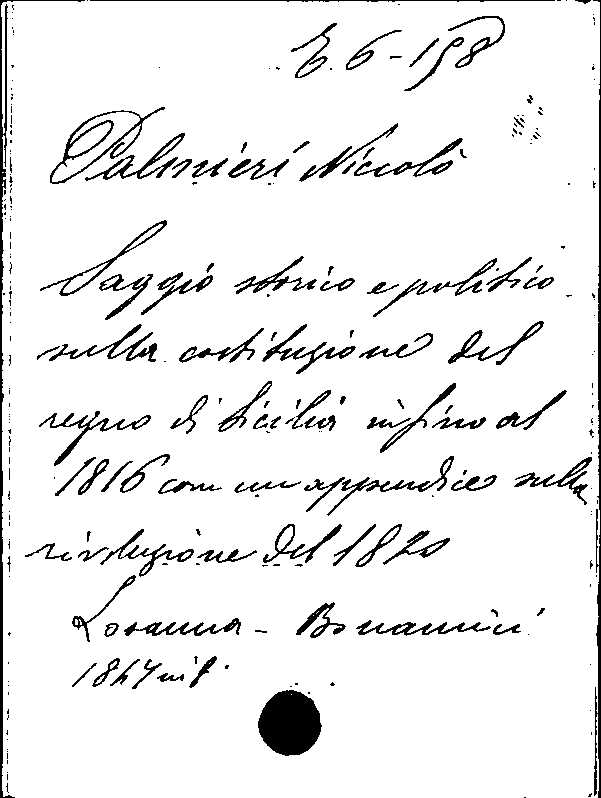 E. 6-158
Palmieri Niccolò
Saggio storico e politico
sulla costituzione del
regno di Sicilia infino al
1816 con un appendice sulla
rivoluzione del 1820
Losanna - Bonamici
1847 in 8.